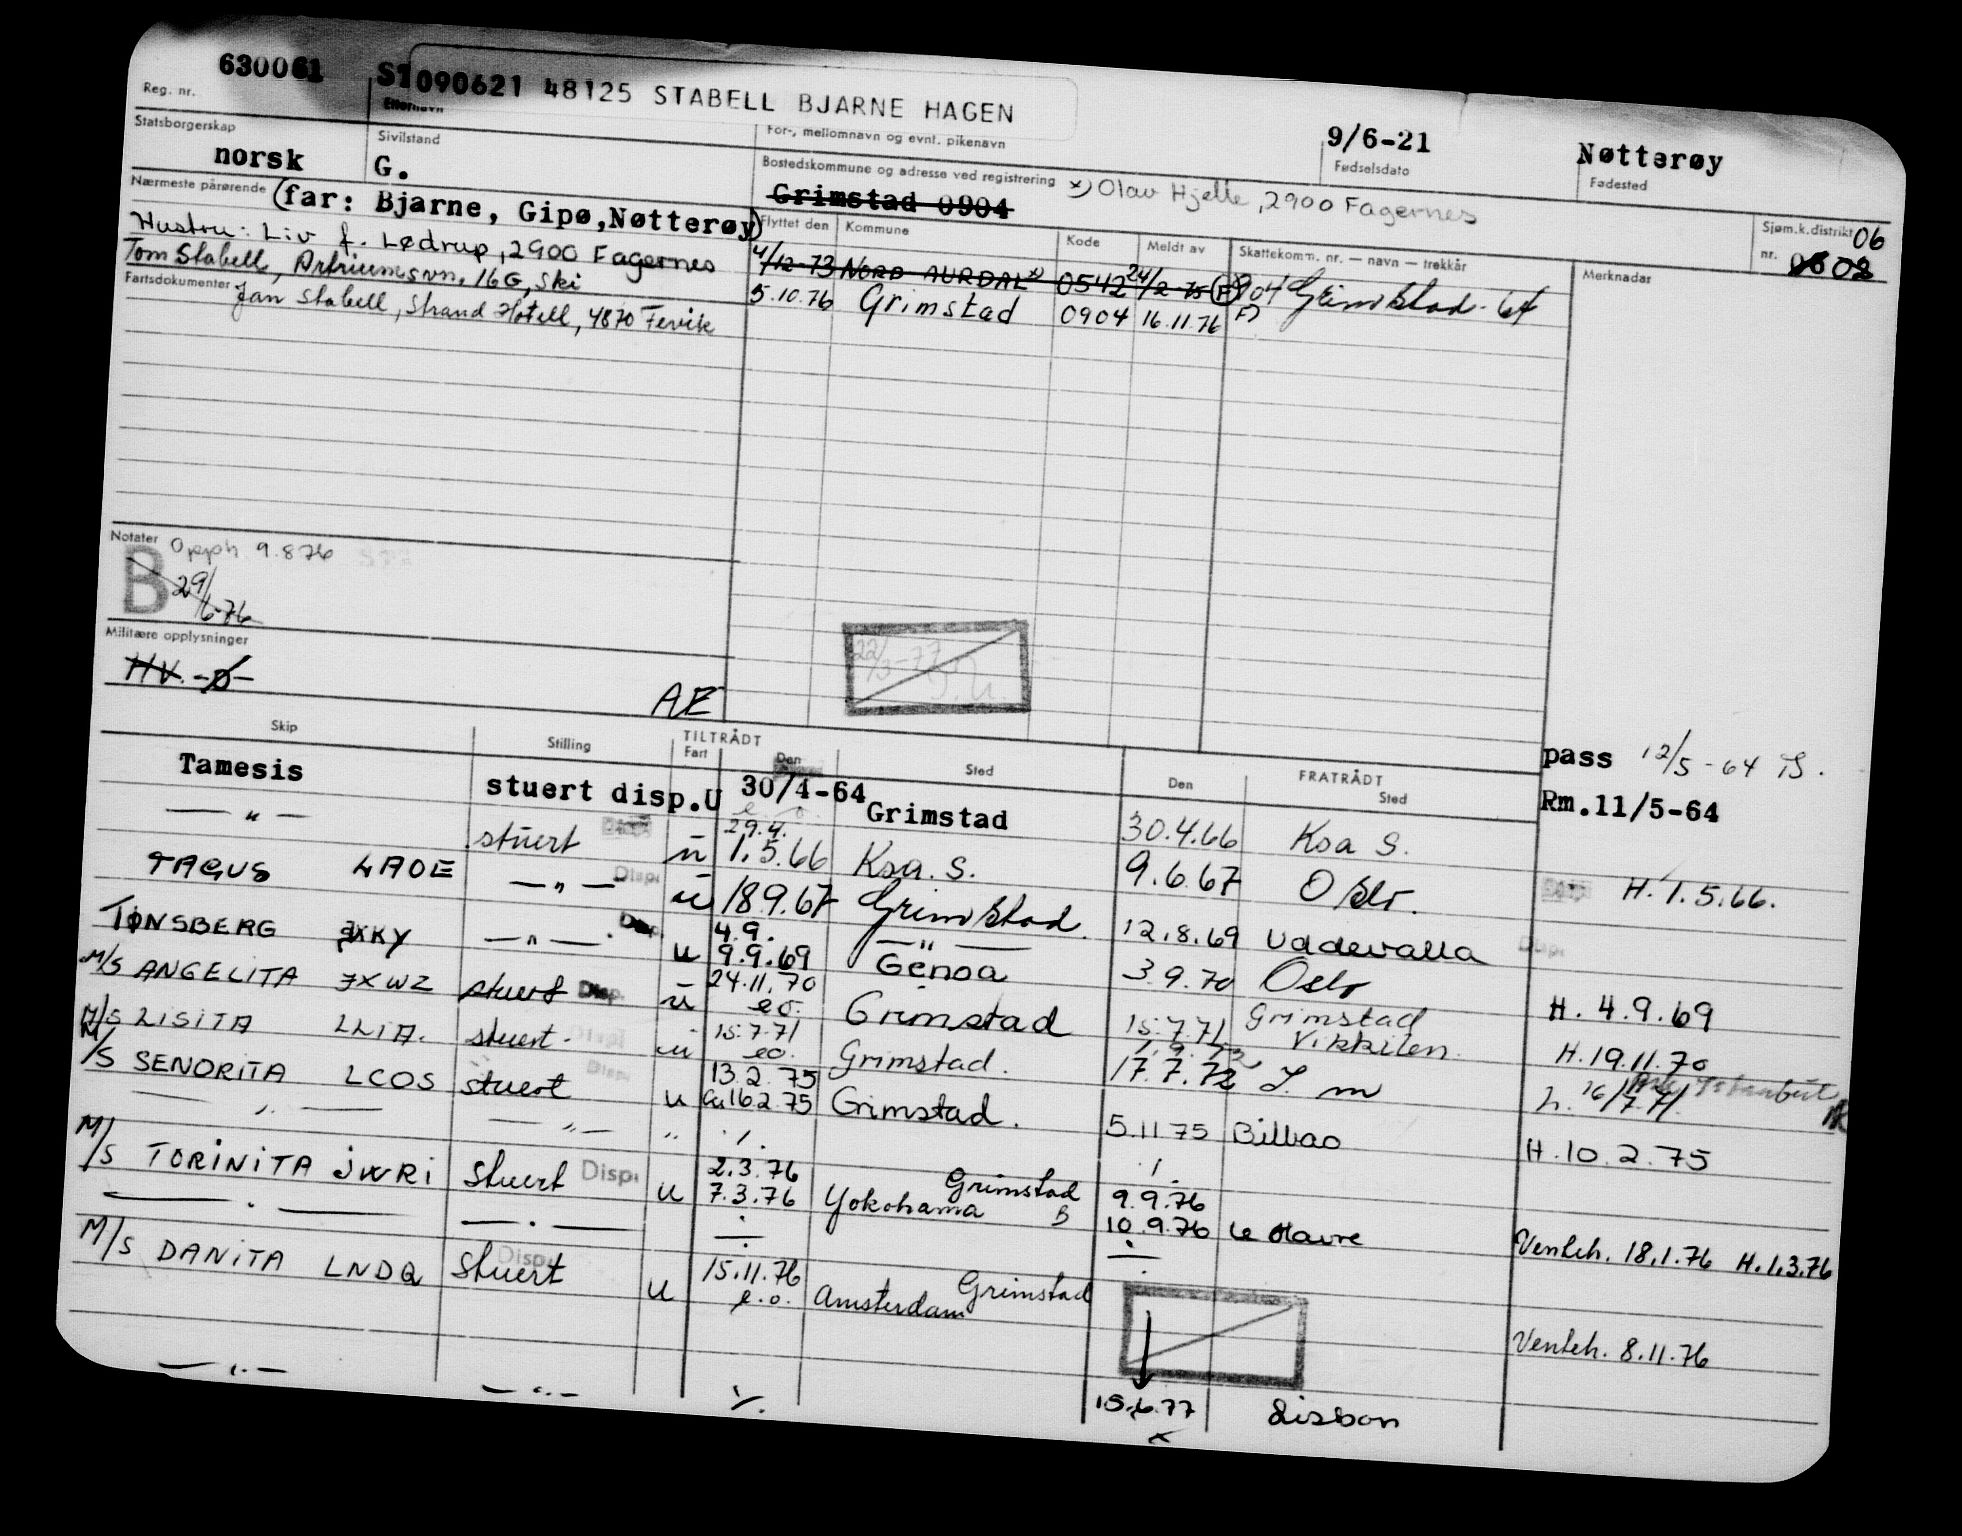 630061 ST090621 48125 STABELL BJARNE HAGEN 9/6-21 Nøtterøy
Reg. nr. Etternavn For-, mellomnavn og evnt. pikenavn Fødselsdato Fødested
Statsborgerskap Sivilstand Bostedskommune og adresse ved registrering x) Olav Hjelle, 2900 Fagernes
norsk G. Grimstad 0904
Nærmeste pårørende (far: Bjarne, Gipø, Nøtterøy)
Hustru: Liv f. Lødrup, 2900 Fagernes
Tom Stabell, Artriumsvn. 16G, Ski
Fartsdokumenter Jan Stabell, Strand Hotell, 4870 Fevik
Flyttet den Kommune Kode Meldt av Skattekomm. nr. — navn — trekkår Merknader Sjøm.k.distrikt 06
nr. 06 02
4/12-73 NORD AURDAL x) 0542 24/2-75 (F) 904 Grimstad - 64
5.10.76 Grimstad 0904 16.11.76 F)
Notater Opph. 9.876
B 29/6-76
22/3-77
Militære opplysninger
HV. -ø-
AE
Skip Stilling TILTRÅDT Fart Den Sted FRATRÅDT Den Sted
pass 12/5-64
Tamesis stuert disp. U 30/4-64 Grimstad 30.4.66 Ksa S. Rm. 11/5-64
— " — stuert u 29.4. 1.5.66 Ksa. S. 9.6.67 Oslo. H. 1.5.66.
TAGUS LADE — " — Disp. u 18.9.67 Grimstad. 12.8.69 Uddevalla Disp.
TØNSBERG JXKY — " — Disp. u 4.9. 9.9.69 — " — Genoa 3.9.70 Oslo H. 4.9.69
M/S ANGELITA JXWZ stuert Disp. u 24.11.70 eo. Grimstad 15.7.71 Grimstad Vikkilen H. 19.11.70
M/S LISITA LLIA. stuert. Disp. u 15.7.71 eo. Grimstad. 17.7.72 16/7.71
M/S SENORITA LCOS stuert Disp. u 13.2.75 16.2.75 Grimstad. 5.11.75 Bilbao H. 10.2.75
— " — — " — "
M/S TORINITA JWRI Stuert Disp. u 2.3.76 7.3.76 Grimstad Yokohama 9.9.76 10.9.76 Le Havre Venteh. 18.1.76 H. 1.3.76
M/S DANITA LNDQ Stuert Disp. u 15.11.76 e.o. Grimstad Amsterdam Venteh. 8.11.76
— " — — " — 15.6.77 Lisbon